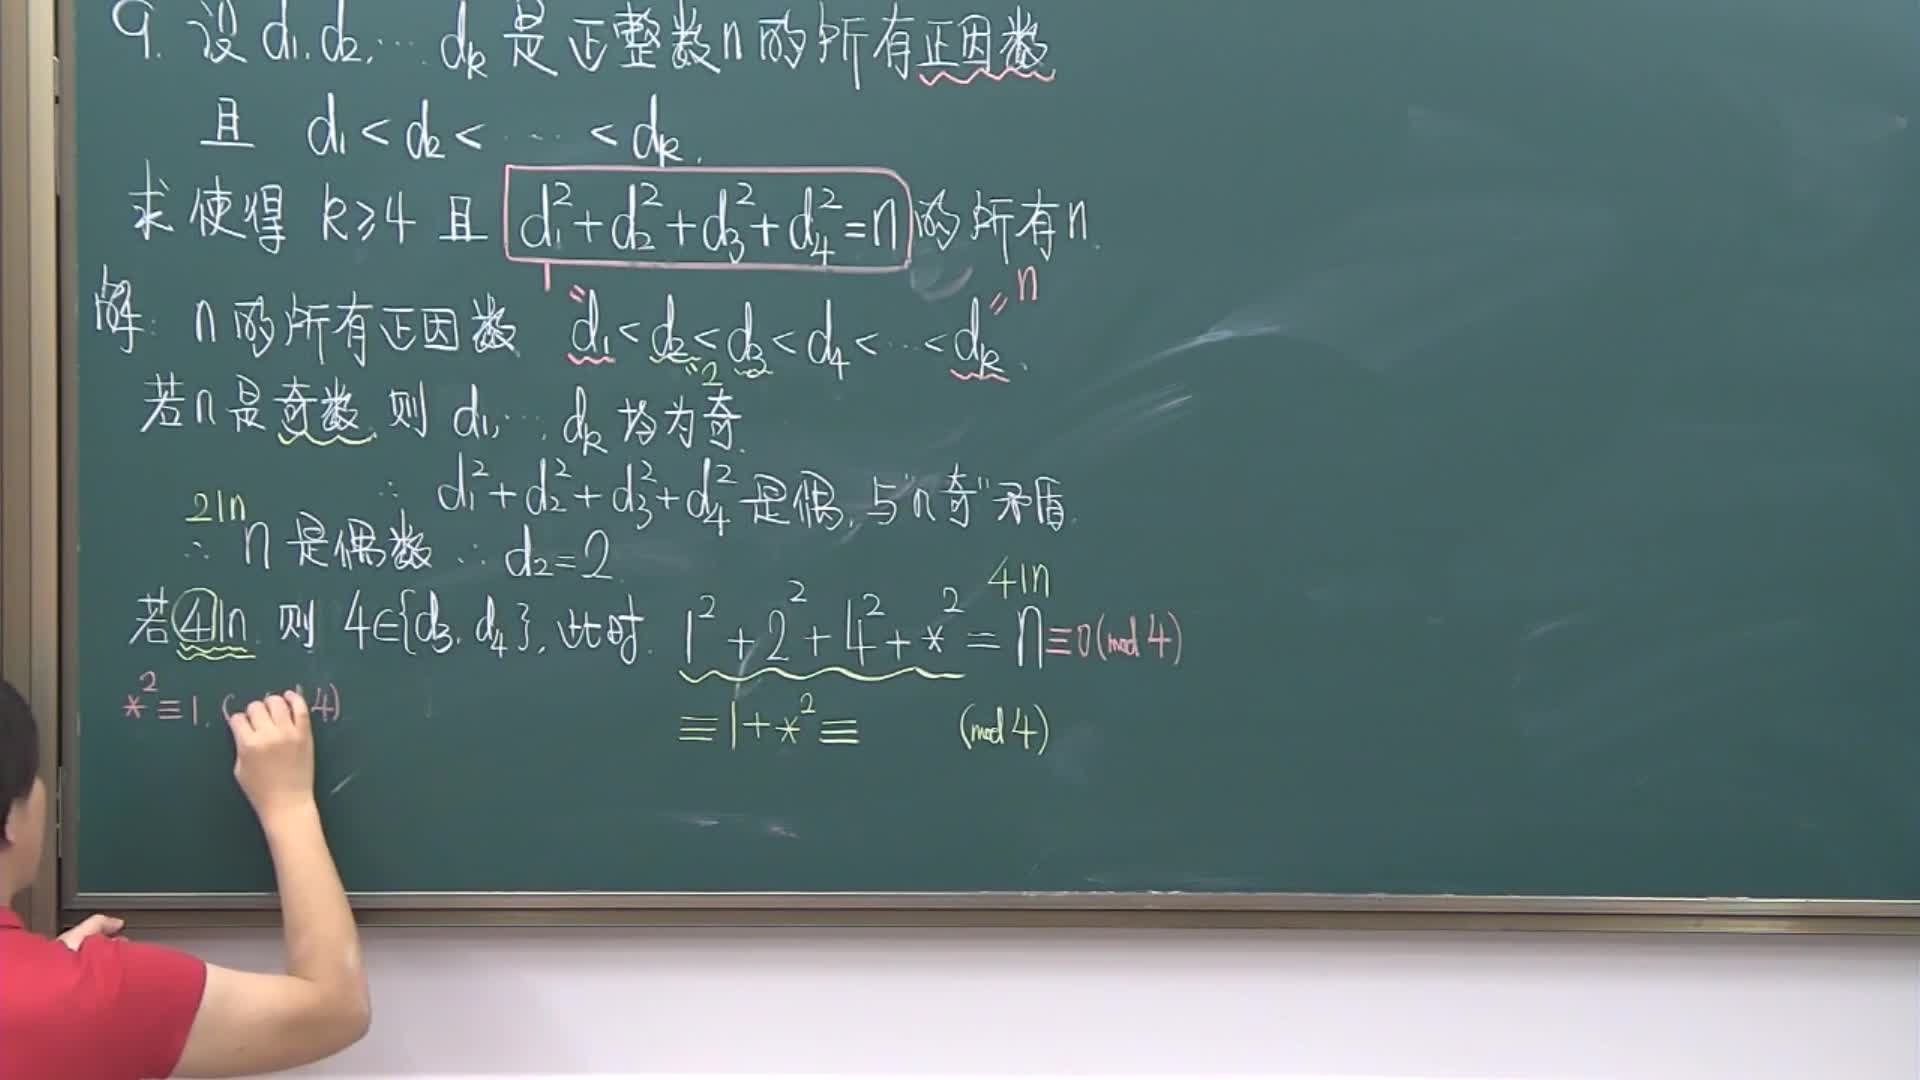 9. 设 d₁, d₂, ⋯ dₖ 是正整数n的所有正因数
且 d₁ < d₂ < ⋯ < dₖ.
求使得 k≥4 且 d₁²+d₂²+d₃²+d₄²=n 的所有n.
解: n的所有正因数 d₁ < d₂ < d₃ < d₄ < ⋯ < dₖ.
1 = = n
= 2
若n是奇数, 则 d₁, ⋯, dₖ 均为奇.
∴ d₁²+d₂²+d₃²+d₄² 是偶, 与“n奇”矛盾.
2|n
∴ n是偶数 ∴ d₂=2
4|n
若4|n, 则 4∈{d₃, d₄}, 此时. 1²+2²+4²+*²=n≡0(mod 4)
*²≡1. ( 4)
≡1+*²≡ (mod 4)